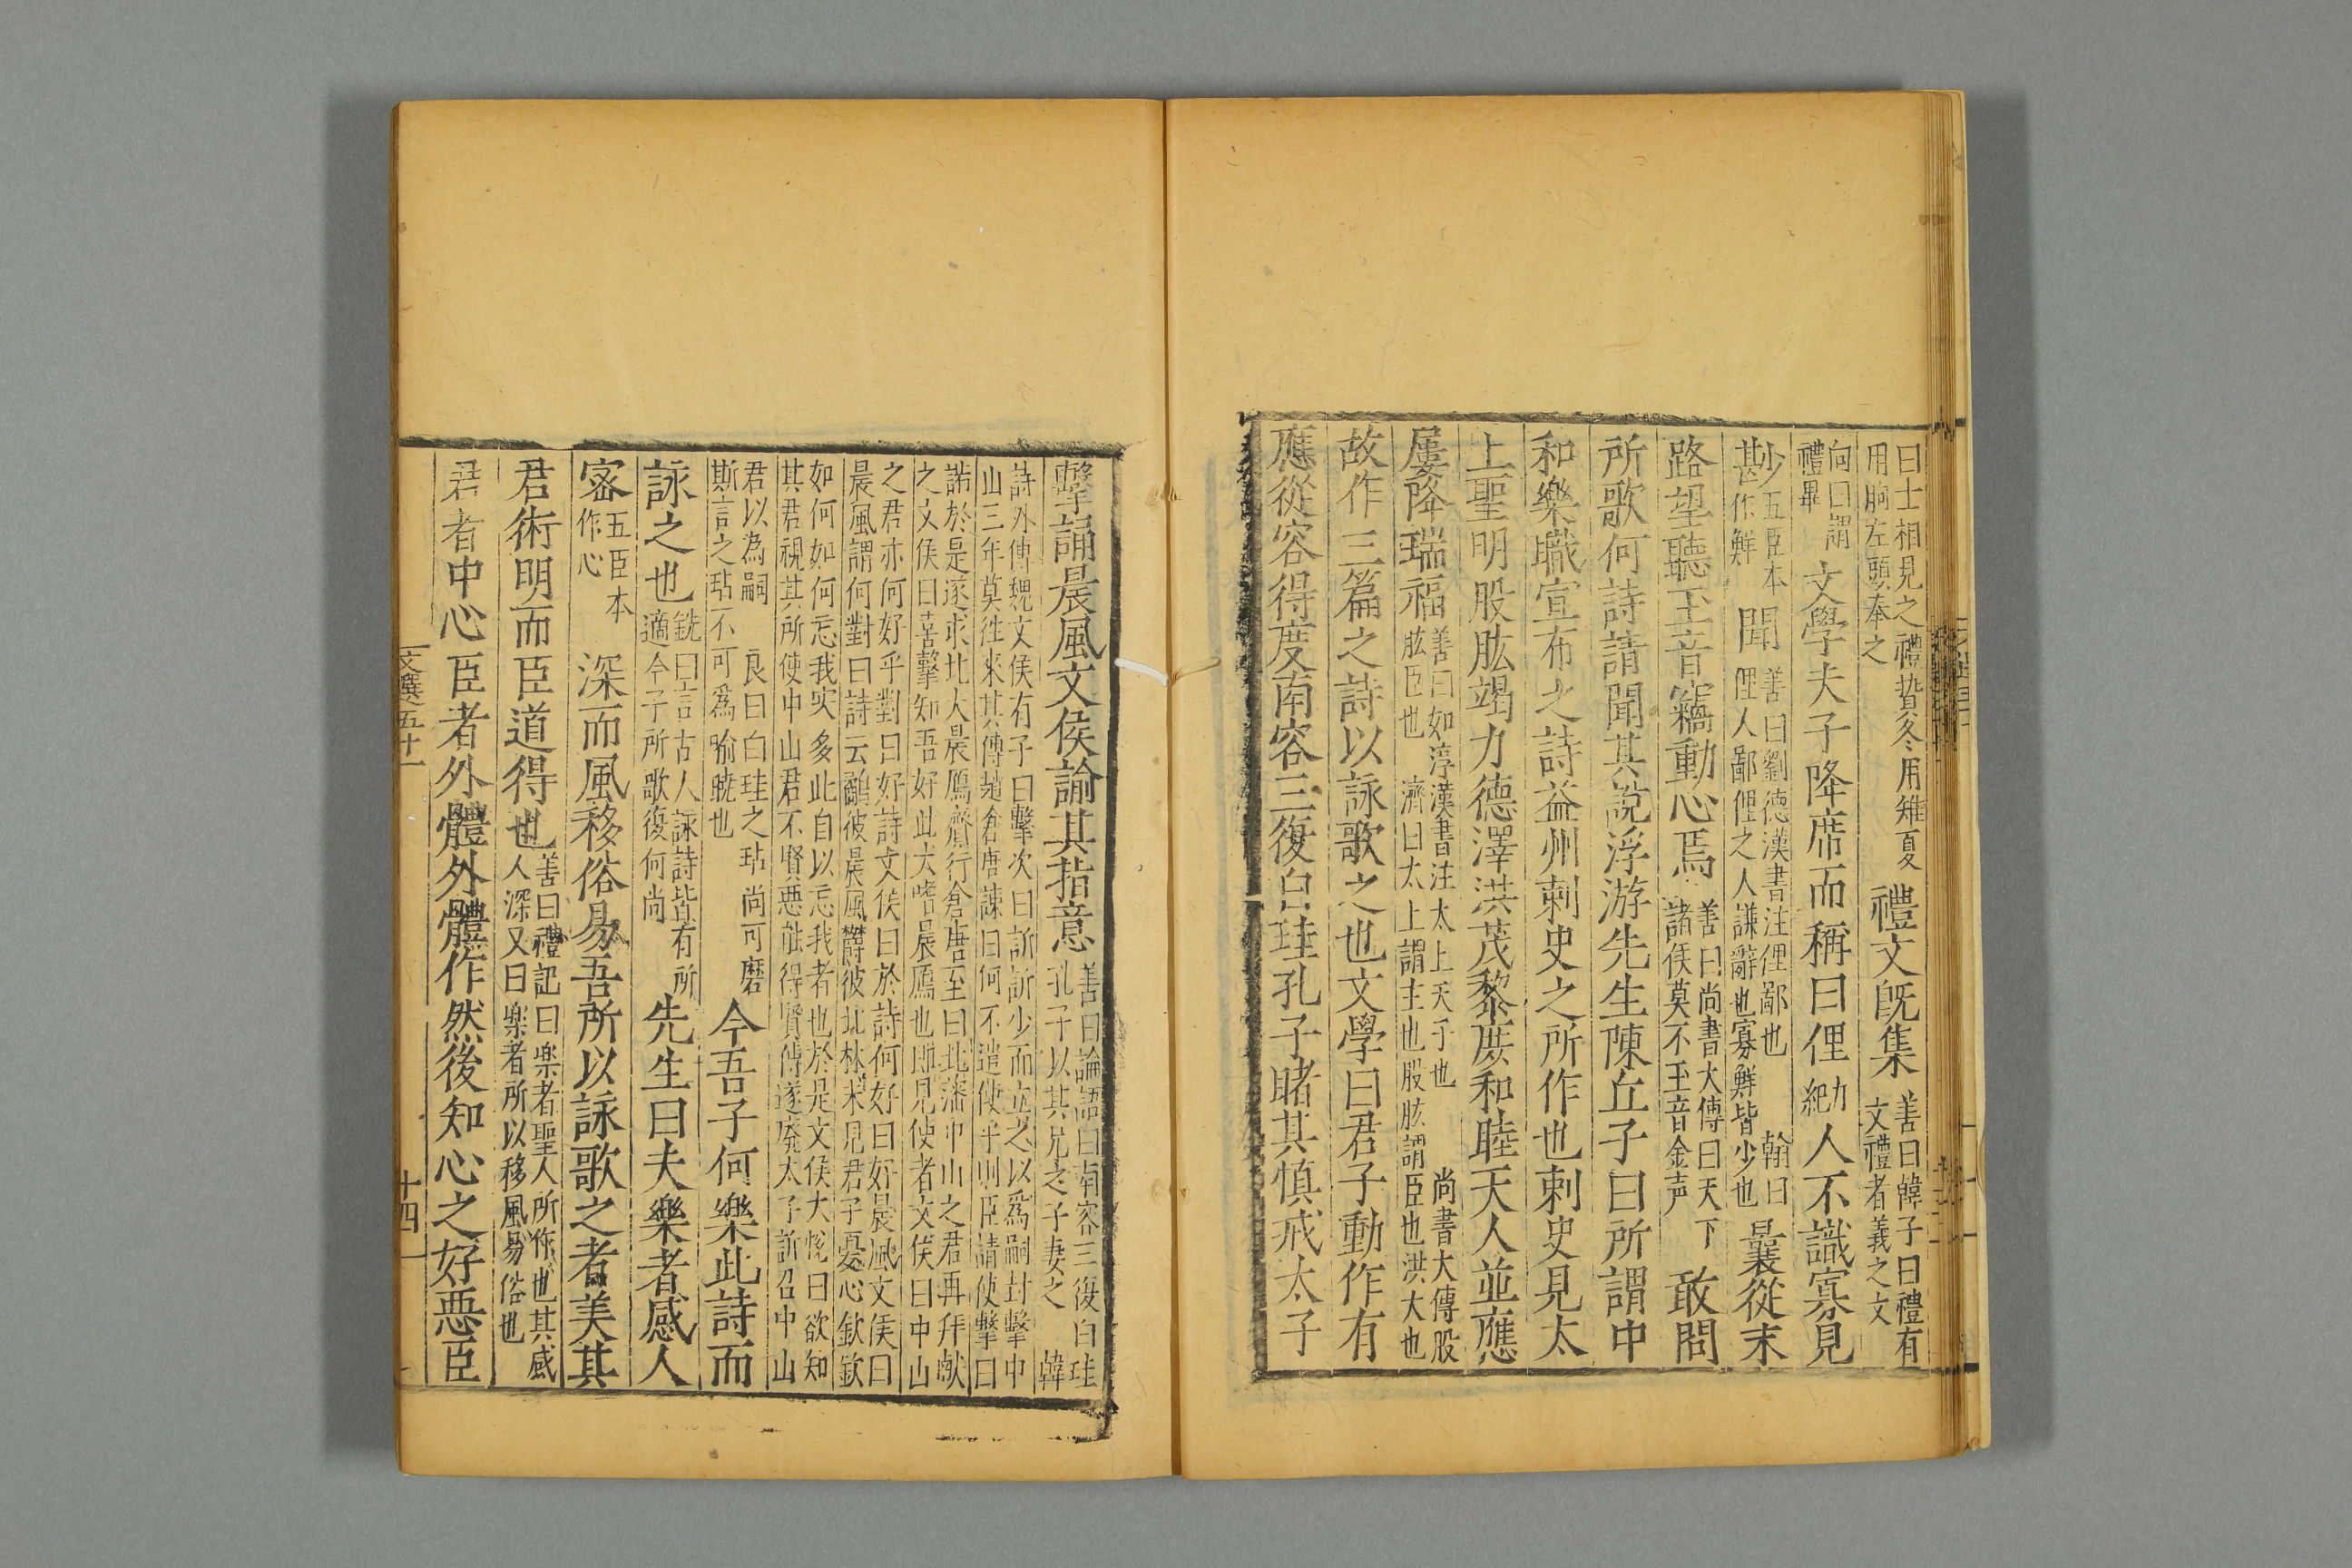 曰士相見之禮摯冬用雉夏
用腒左頭奉之
禮文旣集
善曰韓子曰禮有
文禮者義之文
向曰謂
禮畢
文學夫子降席而稱曰俚人不識寡見
尠五臣本
作鮮
聞
善曰劉德漢書注俚鄙也
俚人鄙俚之人謙辭也寡鮮皆少也
翰曰
曩從末
路望聽玉音竊動心焉
善曰尚書大傳曰天下
諸侯莫不玉音金声
敢問
所歌何詩請聞其說浮游先生陳丘子曰所謂中
和樂職宣布之詩益州刺史之所作也刺史見太
上聖明股肱竭力德澤洪茂黎庶和睦天人並應
屢降瑞福
善曰如淳漢書注太上天子也
尚書大傳股
肱臣也
濟曰太上謂主也股肱謂臣也洪大也
故作三篇之詩以詠歌之也文學曰君子動作有
應從容得度南容三復白珪孔子睹其慎戒太子
擊誦晨風文侯諭其指意
善曰論語曰南容三復白珪
孔子以其兄之子妻之
韓
詩外傳魏文侯有子曰擊次曰訢訢少而立之以爲嗣封擊中
山三年莫往來其傅趙倉唐諫曰何不遣使乎則臣請使擊曰
諾於是遂求北犬晨鴈齎行倉唐至曰北藩中山之君再拜獻
之文侯曰嘻擊知吾好北犬嗜晨鴈也即見使者文侯曰中山
之君亦何好乎對曰好詩文侯曰於詩何好曰好晨風文侯曰
晨風謂何對曰詩云鴥彼晨風鬱彼北林未見君子憂心欽欽
如何如何忘我实多此自以忘我者也於是文侯大悅曰欲知
其君視其所使中山君不賢惡能得賢傅遂廢太子訢召中山
君以為嗣
良曰白珪之玷尚可磨
斯言之玷不可爲喻曉也
今吾子何樂此詩而
詠之也
銑曰言古人詠詩皆有所
適今子所歌復何尚
先生曰夫樂者感人
宻
五臣本
作心
深而風移俗易吾所以詠歌之者美其
君術明而臣道得也
善曰禮記曰楽者聖人所作也其感
人深又曰楽者所以移風易俗也
君者中心臣者外體外體作然後知心之好惡臣
文選五十一
十四